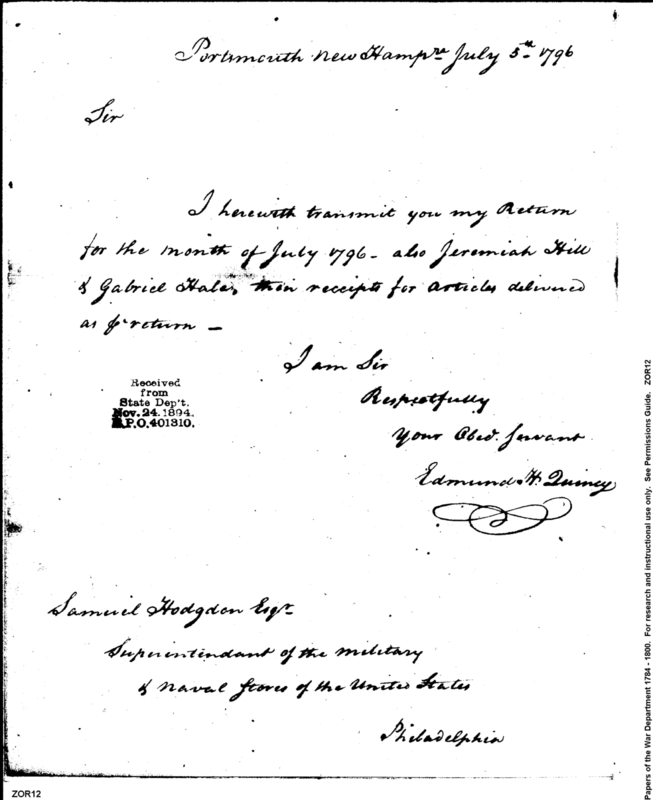 Portsmouth New Hampre July 5th 1796
Sir
I herewith transmit you my Return
for the month of July 1796 - also Jeremiah Hill
& Gabriel Hale, their receipts for articles delivered
as pr return -
I am Sir
Respectfully
Your Obed. Servant
Edmund H. Quincy
Received
from
State Dep't.
Nov. 24. 1894.
R.P.O. 401310.
Samuel Hodgdon Esqr
Superintendant of the military
& naval Stores of the United States
Philadelphia
ZOR12
Papers of the War Department 1784 - 1800. For research and instructional use only. See Permissions Guide. ZOR12